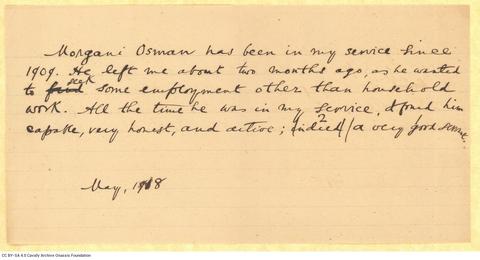 Morgani Osman has been in my service since
1909. He left me about two months ago, as he wanted
to find seek some employment other than household
work. All the time he was in my service, I found him
capable, very honest, and active; indeed a very good
May, 1918
CC BY-SA 4.0 Cavafy Archive Onassis Foundation